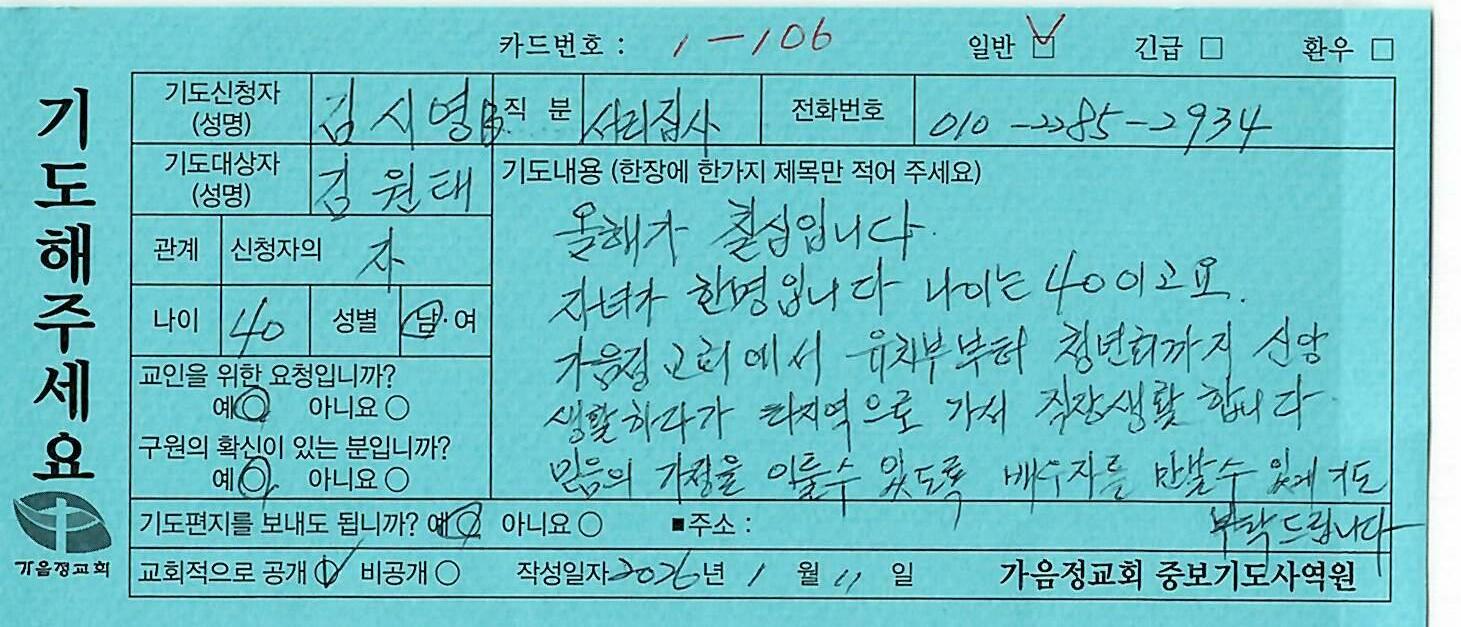 카드번호 : 1-106 일반 ☑ 긴급 □ 환우 □
기도해주세요
가음정교회
기도신청자 (성명) 김시영 직 분 서리집사 전화번호 010-2285-2934
기도대상자 (성명) 김원태
관계 신청자의 자
나이 40 성별 남·여
교인을 위한 요청입니까?
예○ 아니요○
구원의 확신이 있는 분입니까?
예○ 아니요○
기도내용 (한장에 한가지 제목만 적어 주세요)
올해가 칠십입니다.
자녀가 한명입니다 나이는 40이고요.
가음정교회에서 유치부부터 청년회까지 신앙
생활하다가 타지역으로 가서 직장생활 합니다.
믿음의 가정을 이룰수 있도록 배우자를 만날수 있게 기도
부탁드립니다
기도편지를 보내도 됩니까? 예○ 아니요○ ■주소 :
교회적으로 공개○ 비공개○ 작성일자 2026년 1월 11일 가음정교회 중보기도사역원